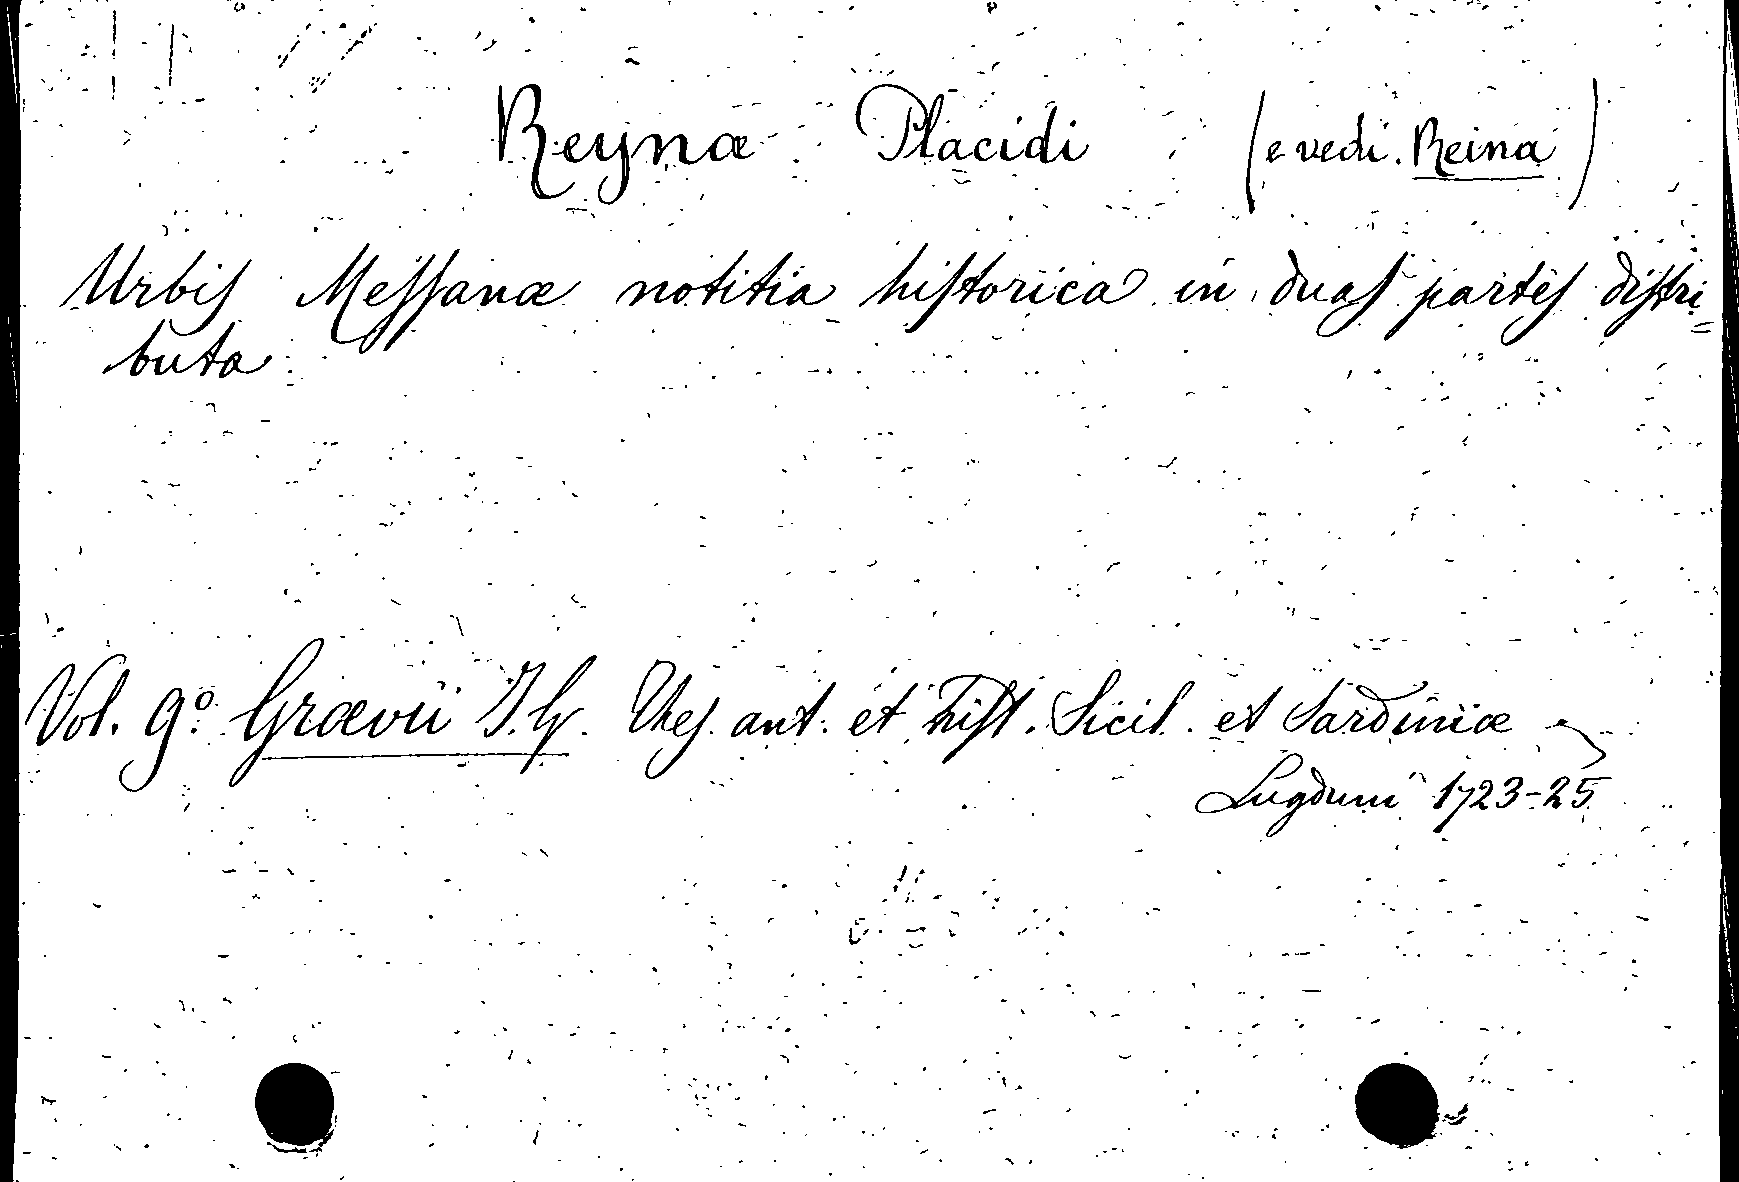 Reynæ Placidi (e vedi Reina)
Urbis Messanæ notitia historica in duas partes distri=
buta
Vol. 9º Grævii J. G. Thes. ant. et hist. Sicil. et Sardiniæ
Lugduni 1723-25